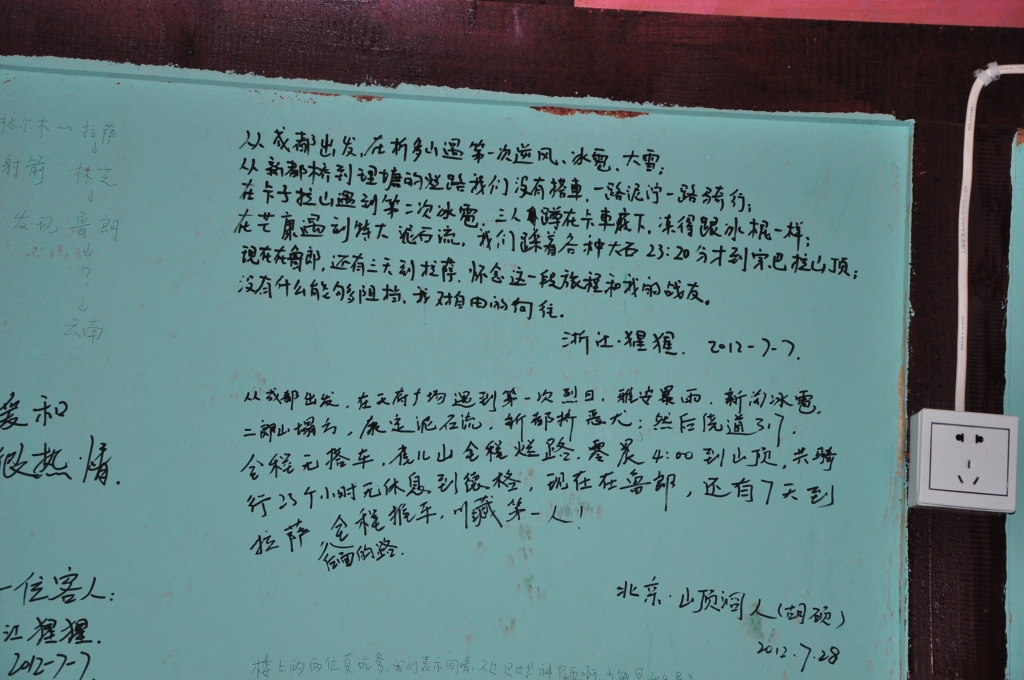 格尔木→拉萨
↓
射箭 林芝
↓
发现 鲁朗
↓
?
↓
云南
从成都出发,在折多山遇第一次逆风、冰雹、大雪;
从新都桥到理塘的烂路我们没有搭車,一路泥泞一路骑行;
在卡子拉山遇到第二次冰雹,三人蹲在卡車底下,冻得跟冰棍一样;
在芒康遇到特大泥石流,我们踩着各种大石23:20分才到宗巴拉山顶;
现在在鲁郎,还有三天到拉萨.怀念这一段旅程和我的战友。
没有什么能够阻挡,我对自由的向往.
浙江·猩猩. 2012-7-7.
爱和
热·情.
从成都出发,在天府广场遇到第一次烈日,雅安暴雨,新沟冰雹,
二郎山塌方,康定泥石流,新都桥恶犬;然后绕道317,
全程无搭车,雀儿山全程烂路,零晨4:00到山顶,共骑
行23个小时无休息到德格,现在在鲁郎,还有7天到
拉萨 全程推车,川藏第一人!
后面的路.
北京·山顶洞人(胡硕)
2012.7.28
一位客人:
江猩猩.
2012-7-7
楼上的两位真坑爹,我们表示同情